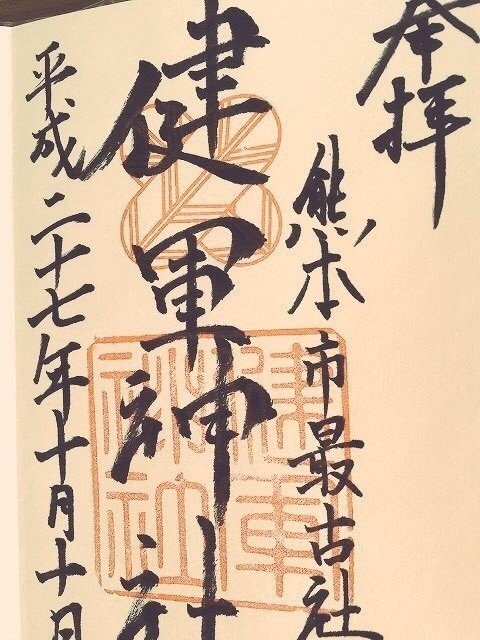 奉拝
熊本市最古社
健軍神社
平成二十七年十月十日
健軍
神社